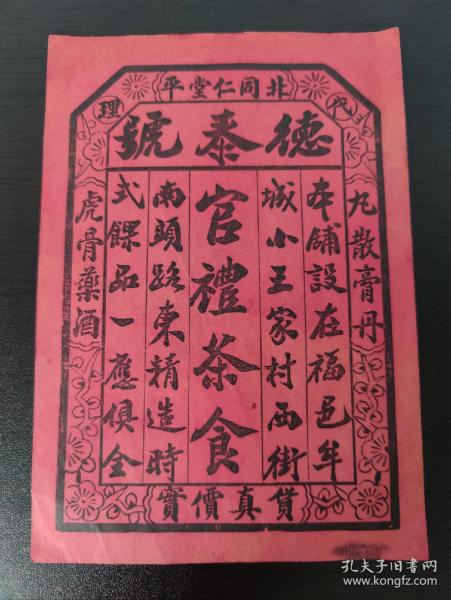 北平同仁堂
代理
德泰號
丸散膏丹
本舖設在福邑牟
城小王家村西街
官禮茶食
南頭路東精造時
式餜品一應俱全
虎骨藥酒
貨真價實
孔夫子旧书网
www.kongfz.com